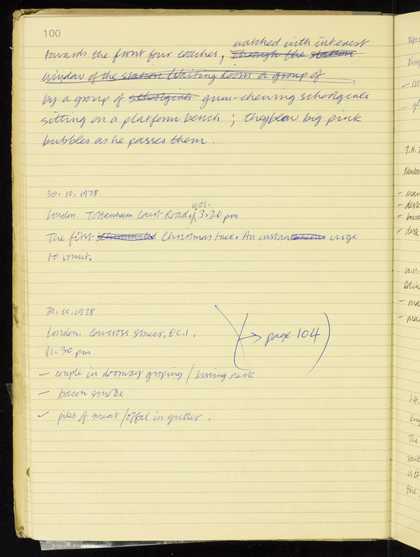 100
towards the front four coaches, watched with interest
through the station
window of the station waiting room a group of
by a group of schoolgirls gum-chewing schoolgirls
sitting on a platform bench; they blow big pink
bubbles as he passes them.
30.10.1978
London. Tottenham Court Road, W.1. 3.20 pm
The first Christmas tree. An instant urge
to vomit.
London. Cowcross Street, EC1.
11.30 pm
→ page 104
– couple in doorway groping / kissing
– bacon smoke
✓ piles of meat / offal in gutter.